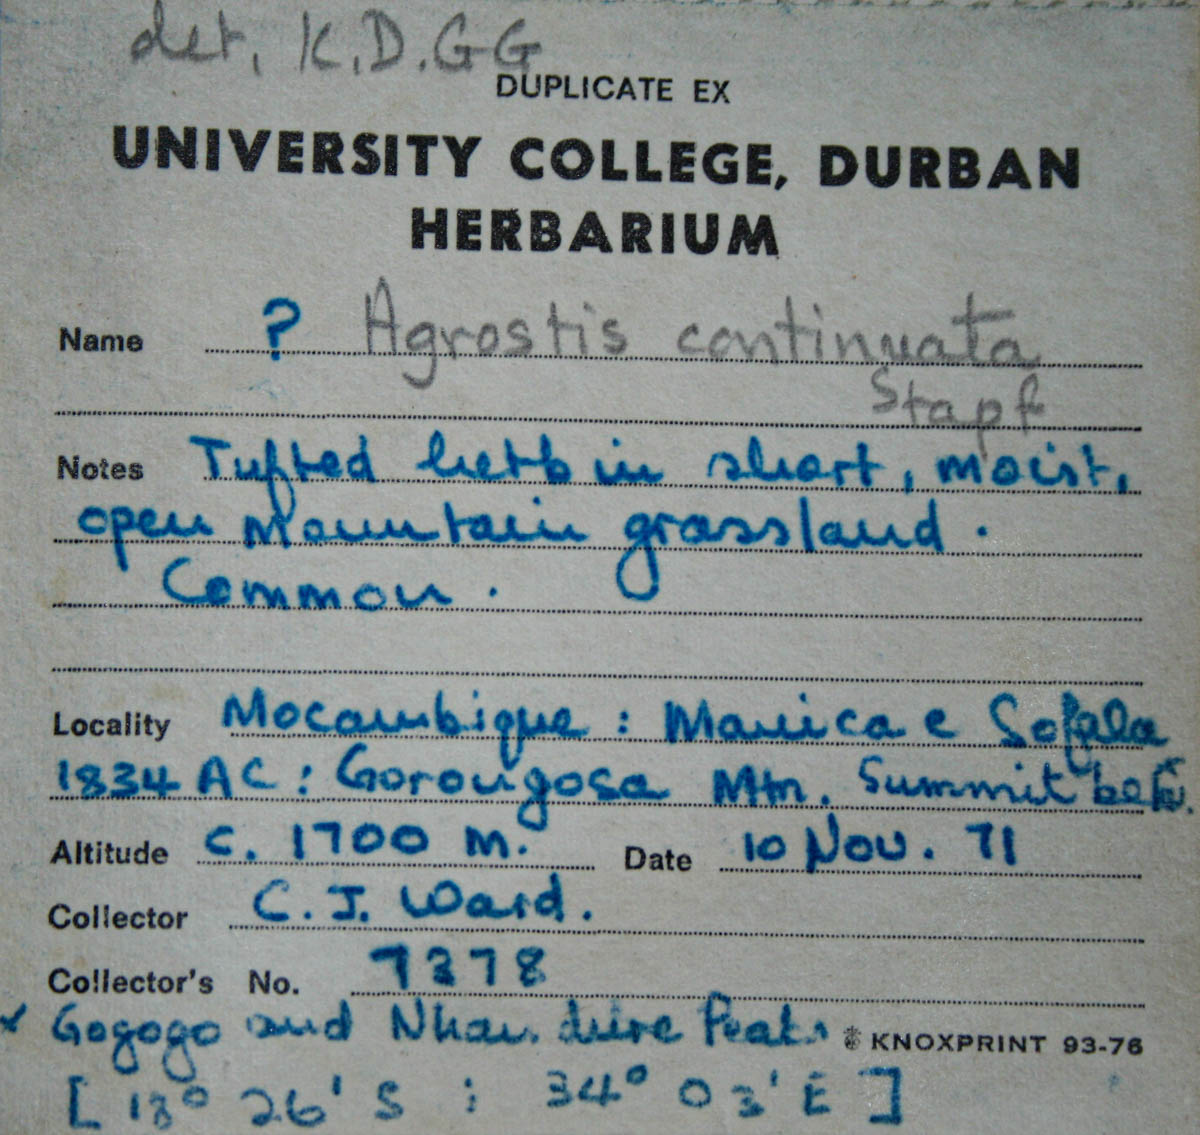 det. K.D.GG
DUPLICATE EX
UNIVERSITY COLLEGE, DURBAN
HERBARIUM
Name ? Agrostis continuata
Stapf
Notes Tufted herb in short, moist,
open mountain grassland.
Common.
Locality Mocambique : Manica e Sofala
1834 AC : Gorongosa Mtn. Summit betw.
Altitude c. 1700 m. Date 10 Nov. 71
Collector C. J. Ward.
Collector's No. 7378
Gogogo and Nhandure Peaks
KNOXPRINT 93-76
[ 18° 26' S ; 34° 03' E ]